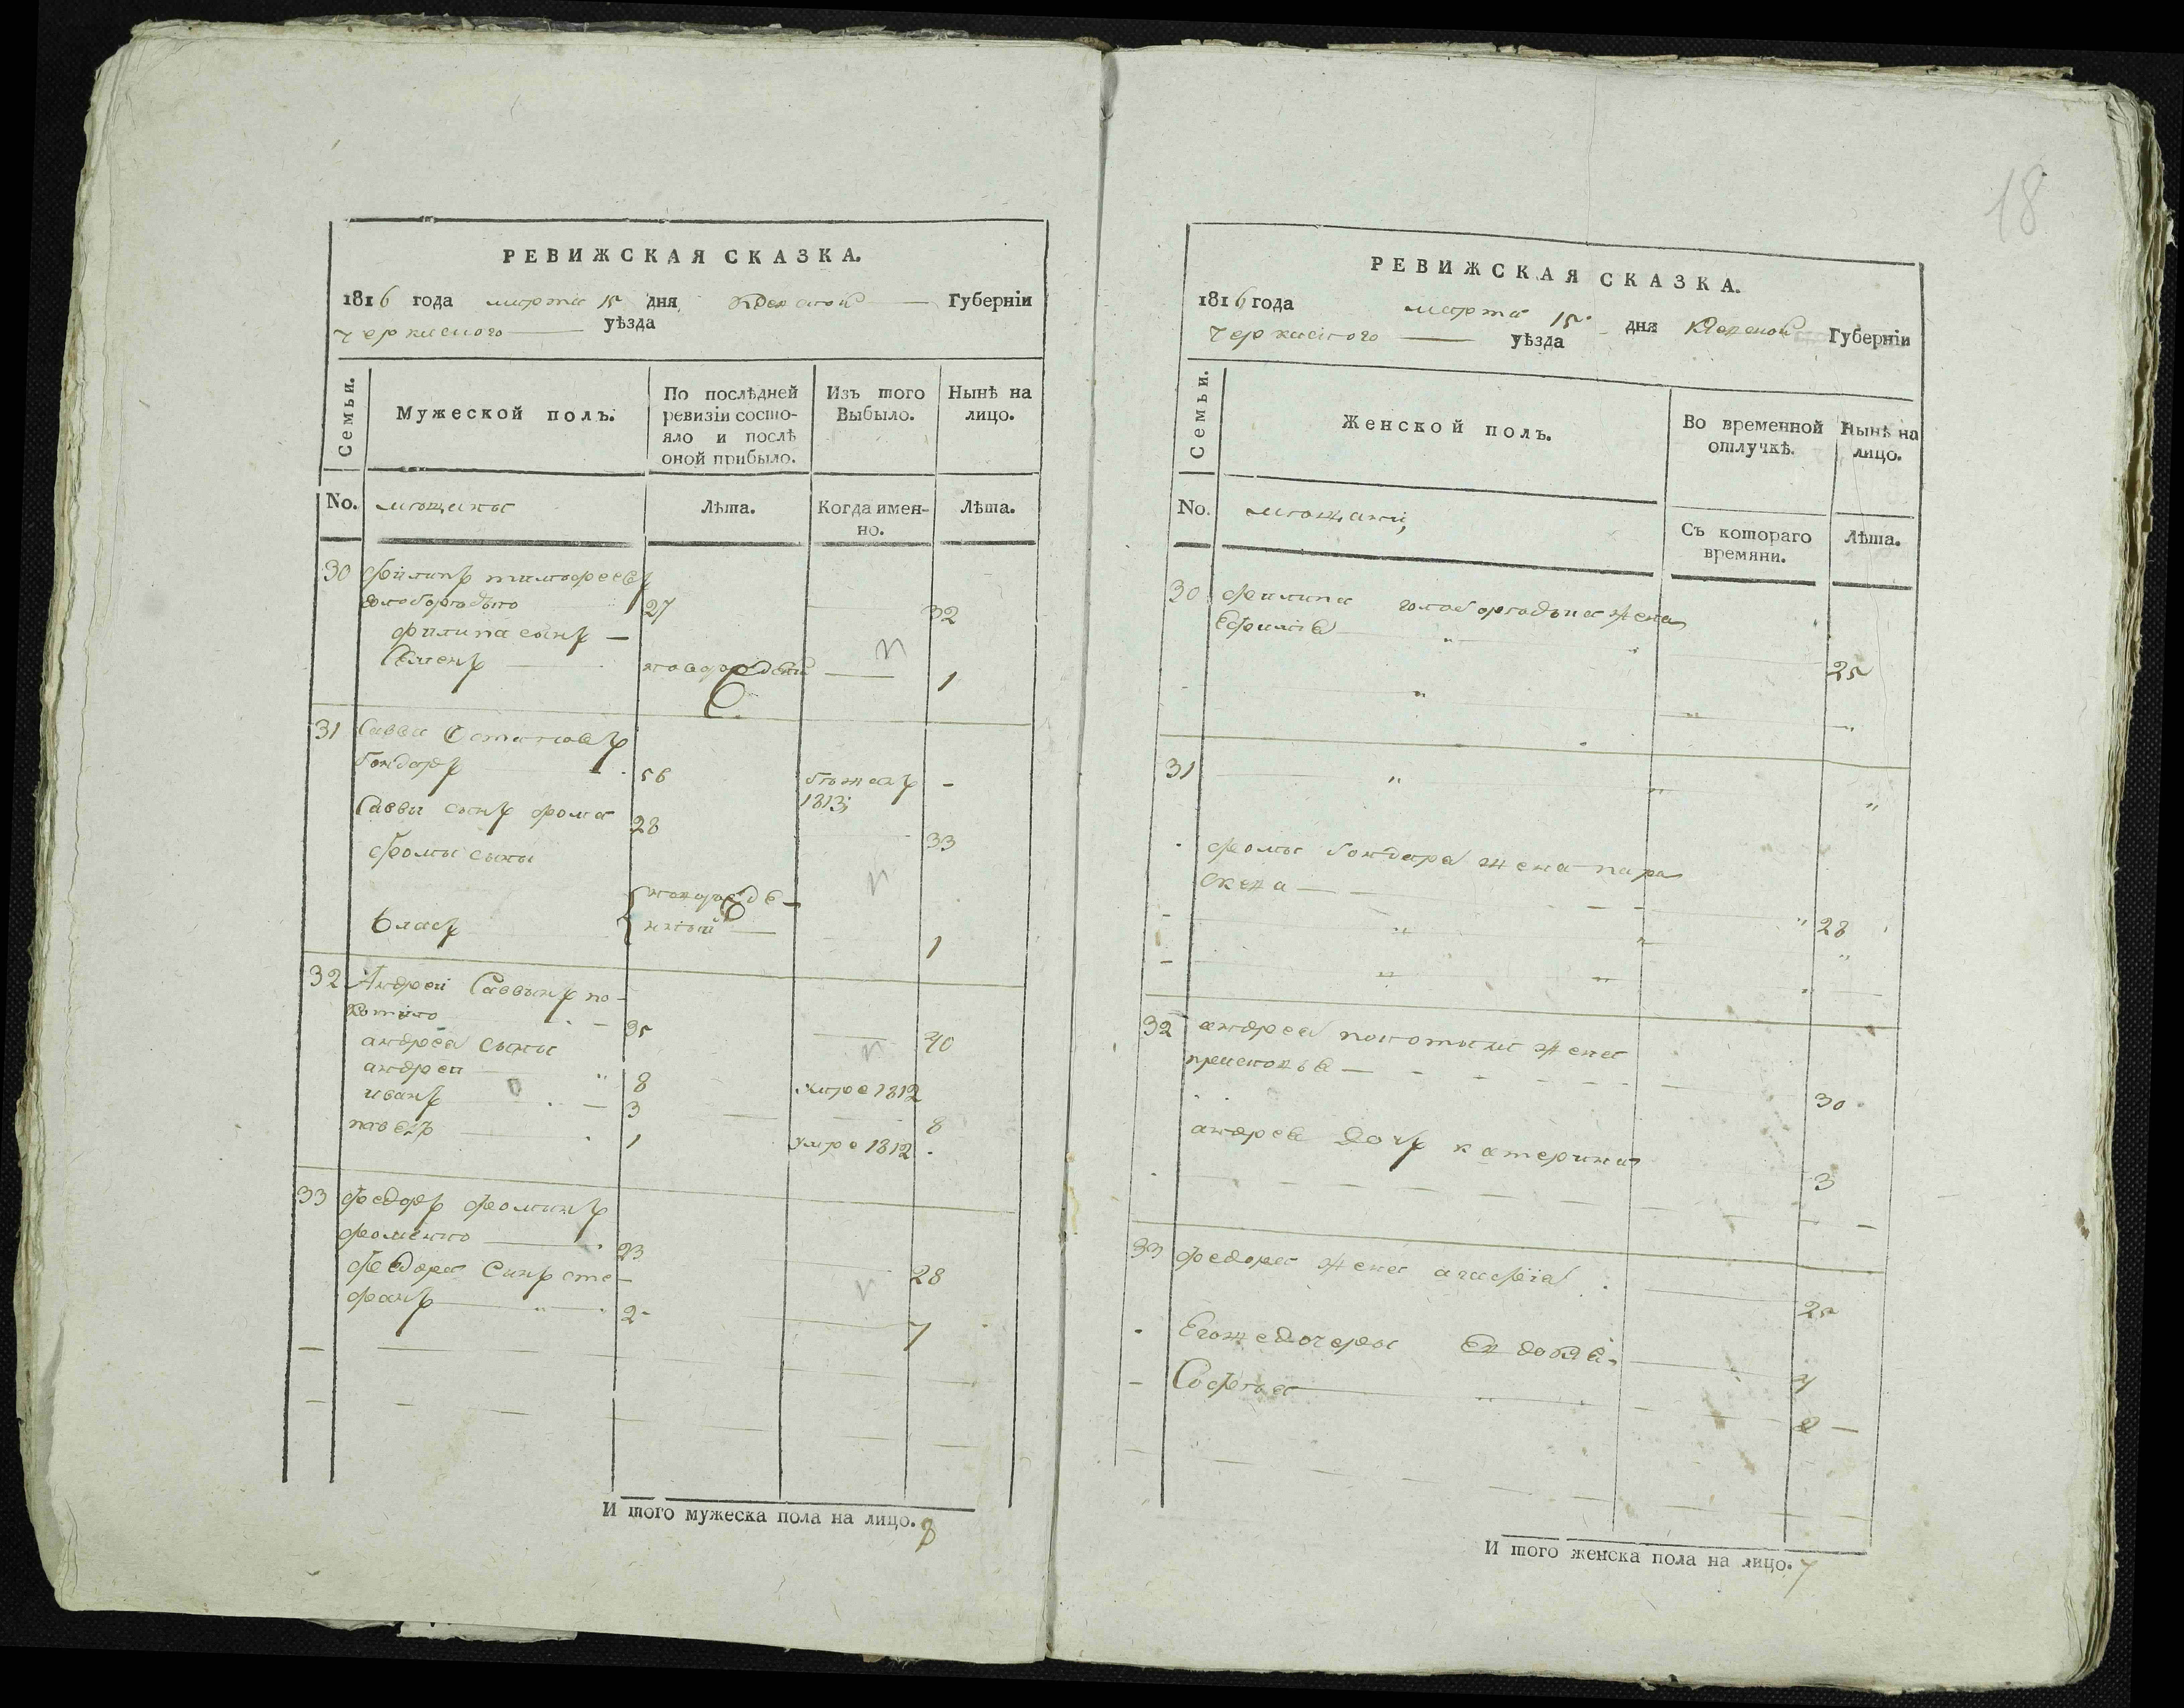 РЕВИЖСКАЯ СКАЗКА.
1816 года марта 15 дня Киевской Губерніи
Черкаского уѣзда
Семьи.
Мужеской полъ.
По послѣдней
ревизіи состо-
яло и послѣ
оной прибыло.
Изъ того
Выбыло.
Нынѣ на
лицо.
No. мещаны Лѣта. Когда имен-
но.
Лѣта.
30 Филипъ тимофеевъ
голобородко 27 32
филипа сынъ
Семенъ новорожденый 1
31 Савва Остаповъ
бондарь 56 бѣжалъ
1813
Саввы сынъ фома 28 33
фомы сыны
новорожде-
нный
Власъ 1
32 Андрей Саввинъ по-
котило 35 40
андрея сыны
андрей 8 умре 1812
иванъ 3 8
павелъ 1 умре 1812
33 федоръ фоминъ
фоменко 23 28
федора Синъ сте-
фанъ 2 7
И того мужеска пола на лицо. 8
18
РЕВИЖСКАЯ СКАЗКА.
1816 года марта 15 дня Киевской Губерніи
Черкаского уѣзда
Семьи.
Женской полъ.
Во временной
отлучкѣ.
Нынѣ на
лицо.
No. мещани
Съ котораго
времяни.
Лѣта.
30 филипа голобородька жена
Ефимія 25
31
фомы бондаря жена пара
скева 28
32 андрея покотила жена
30
андрея дочь катерина
3
33 федора жена агафія
25
Егожедочеры Евдокія 4
Софья 2
И того женска пола на лицо. 7